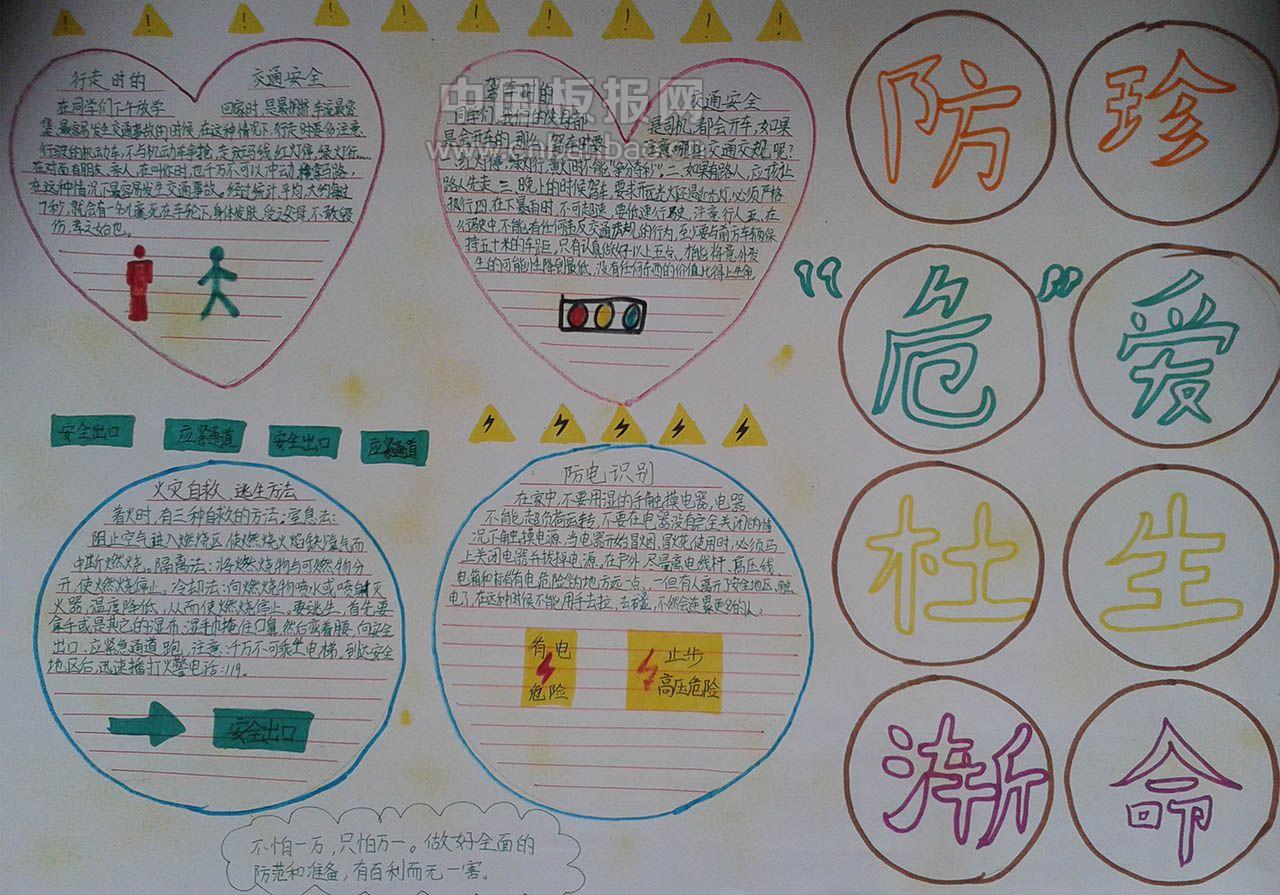 行走时的 交通安全
在同学们下午放学 回家时,是最拥挤,车流最容
集,最容易发生交通事故的时候,在这种情况下,行走时要多注意
行驶的机动车,不与机动车争抢,走斑马线,红灯停,绿灯行……
在对面有朋友、亲人,在叫你时,也千万不可以冲动,横穿马路,
在这种情况下最容易发生交通事故。经过统计,平均,大约每过
7秒,就会有一名儿童死在车轮下,身体发肤,受之父母,不敢毁
伤,孝之始也。
驾车时的 交通安全
同学们,我们的父母都 是司机,都会开车,如果
是会开车的,那么驾车时要 注意哪些交通安规呢?
一、红灯停,绿灯行,黄灯时不能“争分夺秒”二、如果有路人,应该让
路人先走,三、晚上的时候驾车,要求开远光灯还是近光灯,必须严格
执行,四、在下暴雨时,不可超速,要低速行驶,注意行人,五、在
行驶中,不能有任何违反交通法规的行为,至少要与前方车辆保
持五十米的车距,只有认真做好以上五点,才能将意外发
生的可能性降到最低,没有任何东西的价值比得上生命
中国板报网
安全出口 应紧通道 安全出口 应紧通道
火灾自救、逃生方法
着火时,有三种自救的方法:窒息法:
阻止空气进入燃烧区,使燃烧火焰缺氧气而
中断燃烧。隔离法:将燃烧物与可燃物分
开,使燃烧停止。冷却法:向燃烧物喷水或喷射灭
火器,温度降低,从而使燃烧停止。要逃生,首先要
拿手或是其它的湿布、湿毛巾掩住口鼻,然后弯着腰,向安全
出口、应紧急通道跑,注意:千万不可乘坐电梯,到达安全
地区后,迅速播打火警电话:119。
安全出口
防电识别
在家中,不要用湿的手触摸电器,电器
不能超负荷运转,不要在电器没有完全关闭的情
况下触摸电源,当电器开始冒烟,冒花使用时,必须马
上关闭电器并拔掉电源,在户外,尽量离电线杆、高压线
电箱和标有“有电危险”的地方远一点。一但有人离开了安全地区,触
电了,在这种时候不能用手去拉,去碰,不然会连累更多的人。
有电
危险
止步
高压危险
不怕一万,只怕万一。做好全面的
防范和准备,有百利而无一害。
防 珍
“危” 爱
杜 生
渐 命